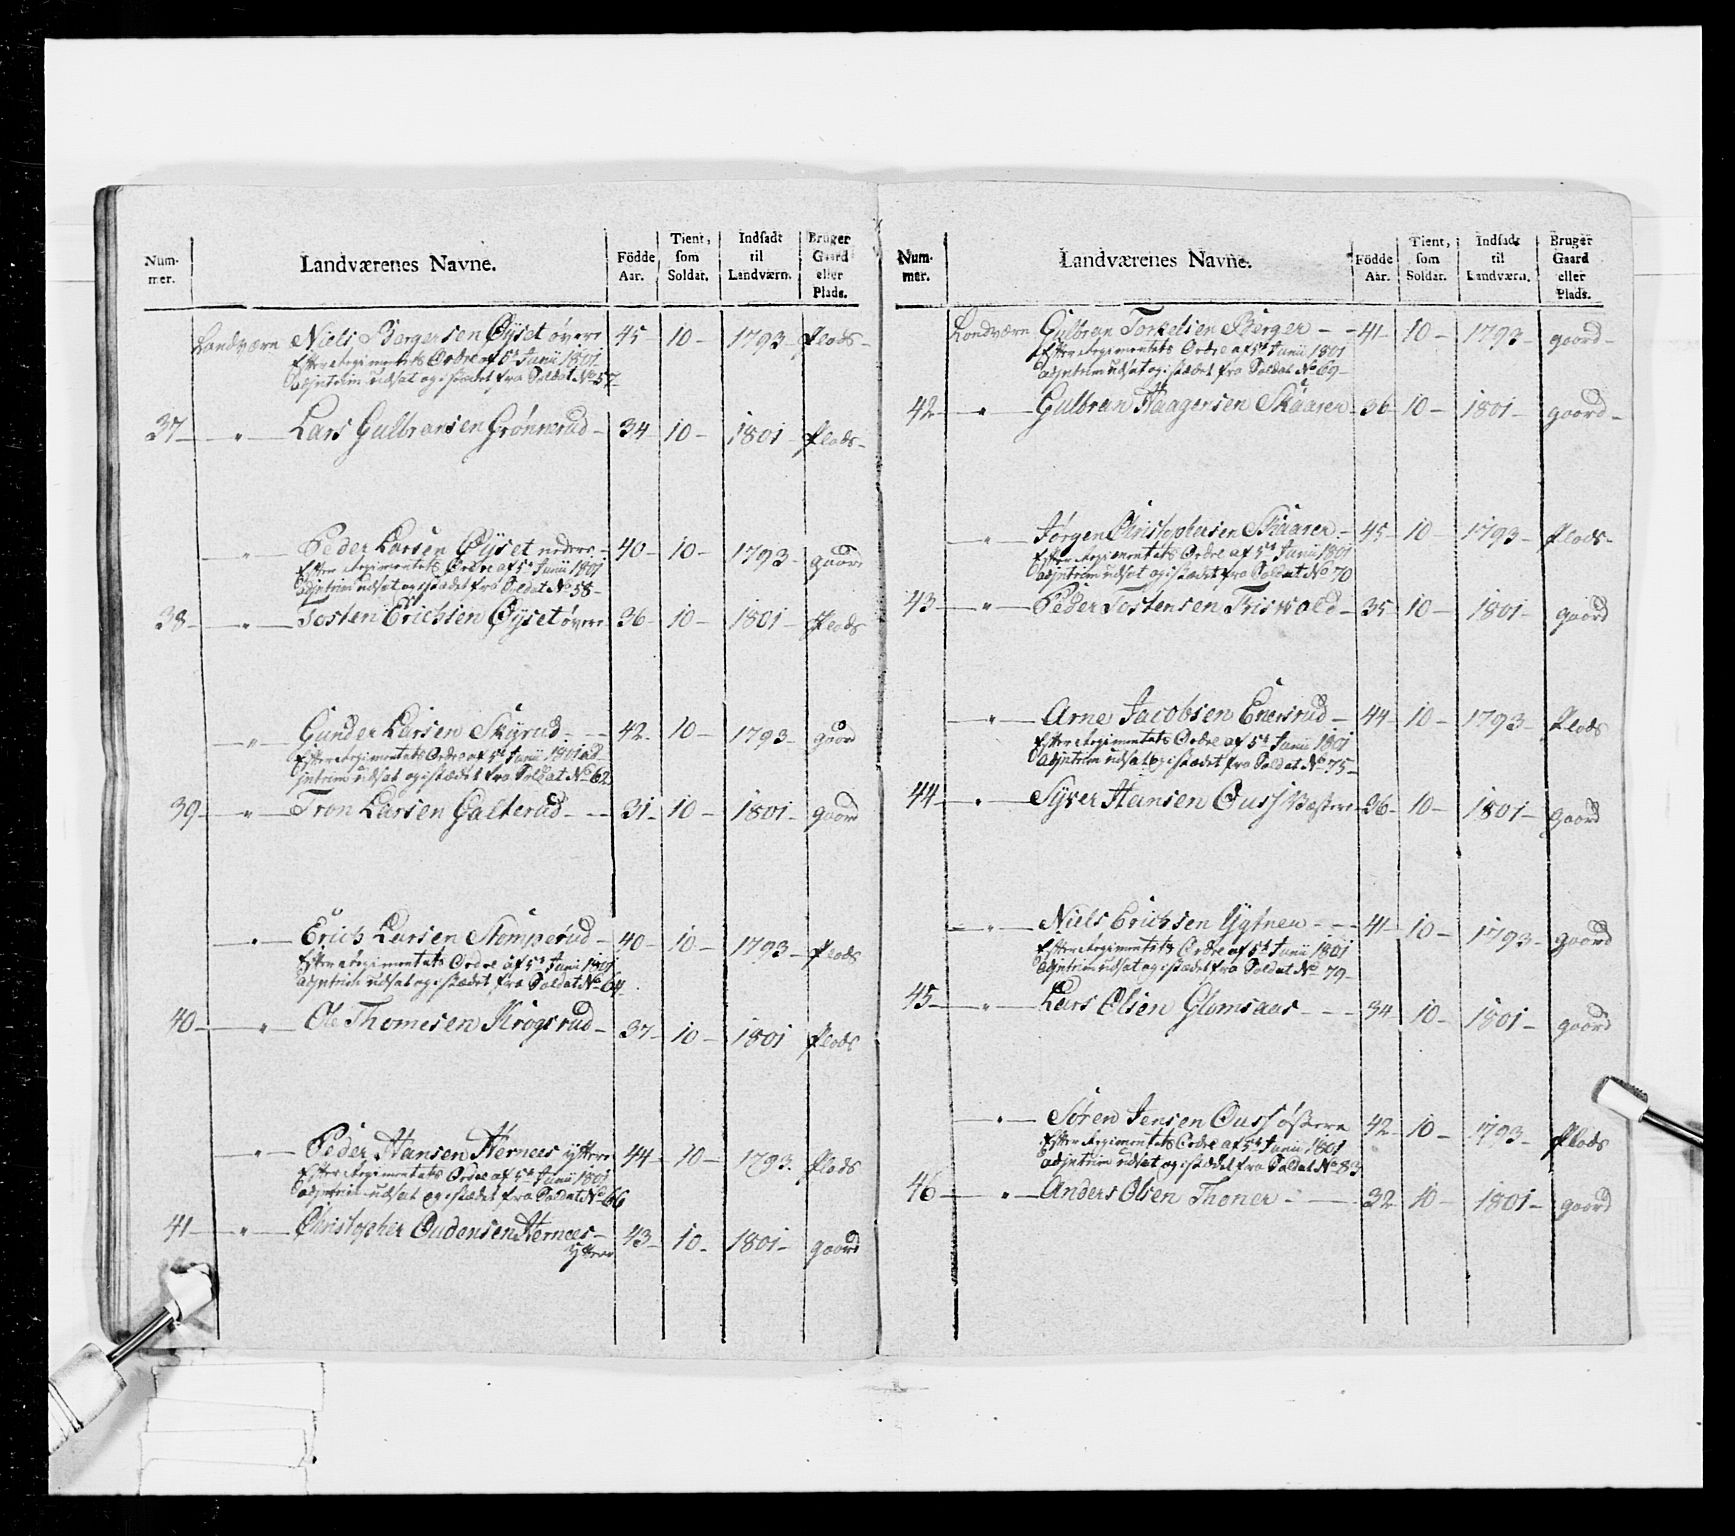 Num-
mer.
Landværenes Navne.
Fødde
Aar.
Tient,
som
Soldat.
Indsadt
til
Landværn.
Bruger
Gaard
eller
Plads.
Landværn Niels Bergersen Øyset øvere 45 - 10 - 1793 - Plads -
Efter Regimentets Ordre af 5t Junii 1801
Adjntrim udsat og istædet fra Soldat No 57
37 - " - Lars Gulbransen Grønnerud - 34 - 10 - 1801 - Plads -
- " - Peder Larsen Øyset nedere - 40 - 10 - 1793 - gaard
Efter Regimentets Ordre af 5t Junii 1801
Adjntrim udsat og istædet fra Soldat No 58 -
38 - " - Tosten Erichsen Øyset øvere 36 - 10 - 1801 - Plads
- " - Gunder Larsen Skyrud - - 42 - 10 - 1793 - gaard
Efter Regimentets Ordre af 5t Junii 1801 ad
jntrim udsat og istædet fra Soldat No 62
39 - " - Tron Larsen Galterud - - 31 - 10 - 1801 - gaard
- " - Erich Larsen Stomperud - 40 - 10 - 1793 - Plads
Efter Regimentets Ordre af 5t Junii 1801
adjntrim udsat og istædet fra Soldat No 64
40 - " - Ole Thomesen Krogsrud - 37 - 10 - 1801 Plads
- " - Peder Hansen Hernees yttere 44 - 10 - 1793 - Plads
Efter Regimentets Ordre af 5t Junii 1801
adjntrim udsat og istædet fra Soldat No 66
41 - " - Christopher Oudensen Hernees - 43 - 10 - 1801 - gaard
yttere
Num-
mer.
Landværenes Navne.
Fødde
Aar.
Tient,
som
Soldat.
Indsadt
til
Landværn.
Bruger
Gaard
eller
Plads.
Landværn Gulbran Torkelsen Berger - - 41 - 10 - 1793 - gaard -
Efter Regimentets Ordre af 5t Junii 1801
adjntrim udsat og istædet fra Soldat No 69 -
42 - " - Gulbran Haagensen Skaaren - 36 - 10 - 1801 - gaard -
- " - Jørgen Christophersen Skaaren - 45 - 10 - 1793 - Plads -
Efter Regimentets Ordre af 5t Junii 1801
Adjntrim udsat og istædet fra Soldat No 70
43 - " - Peder Tostensen Riswold - 35 - 10 - 1801 - gaard
- " - Arne Jacobsen Enersrud - 44 - 10 - 1793 - Plads
Efter Regimentets Ordre af 5t Junii 1801
Adjntrim udsat og istædet fra Soldat No 75 -
44 - " - Syver Hansen Ouss Væstere 36 - 10 - 1801 - gaard
- " - Niels Erichsen - - 41 - 10 - 1793 - gaard
Efter Regimentets Ordre af 5t Junii 1801
Adjntrim udsat og istædet fra Soldat No 79 -
45 - " - Lars Olsen Glomsaas - - - 34 10 - 1801 - gaard
- " - Søren Jensen Ouss østere 42 - 10 - 1793 - Plads
Efter Regimentets Ordre af 5t Junii 1801
adjntrim udsat og istædet fra Soldat No 83
46 - " - Anders Olsen Thoner - - 32 - 10 - 1801 - gaard